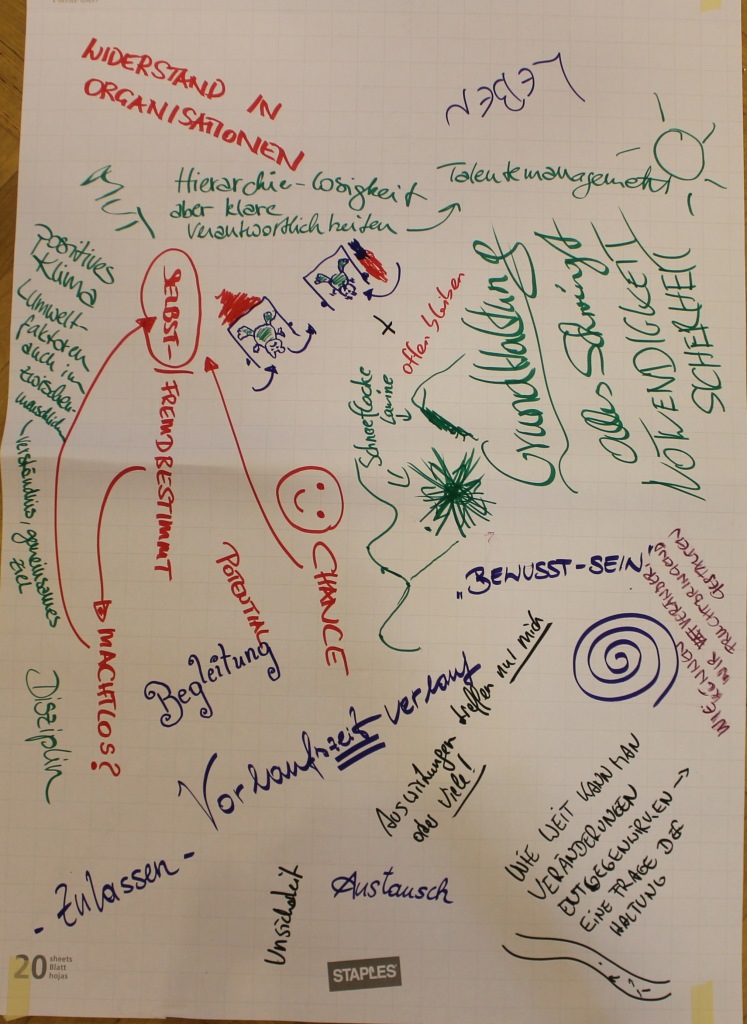 WIDERSTAND IN
ORGANISATIONEN
LEBEN
MUT
Hierarchie-losigkeit
aber klare
verantwortlichkeiten
Talentemanagement
positives
Klima
Umwelt-
faktoren
auch im
zwischen-
menschlichen
verständnis, gemeinsames
Ziel
SELBST-/FREMDBESTIMMT
MACHTLOS?
CHANCE
POTENTIAL
+
offen bleiben
Schneeflocke
Lawine
Grundhaltung
alles Schwingt
NOTWENDIGKEIT
SICHERHEIT
„BEWUSST-SEIN"
WIE KÖNNEN
WIR VERÄNDER.
FRUCHTBRINGEND
GESTALTEN
Begleitung
Disziplin
Vorlaufszeit verlauf
Auswirkungen treffen nur mich
oder viele!
WIE WEIT KANN MAN
VERÄNDERUNGEN
ENTGEGENWIRKEN →
EINE FRAGE DER
HALTUNG
- Zulassen -
Unsicherheit
Austausch
20 sheets
Blatt
hojas
STAPLES